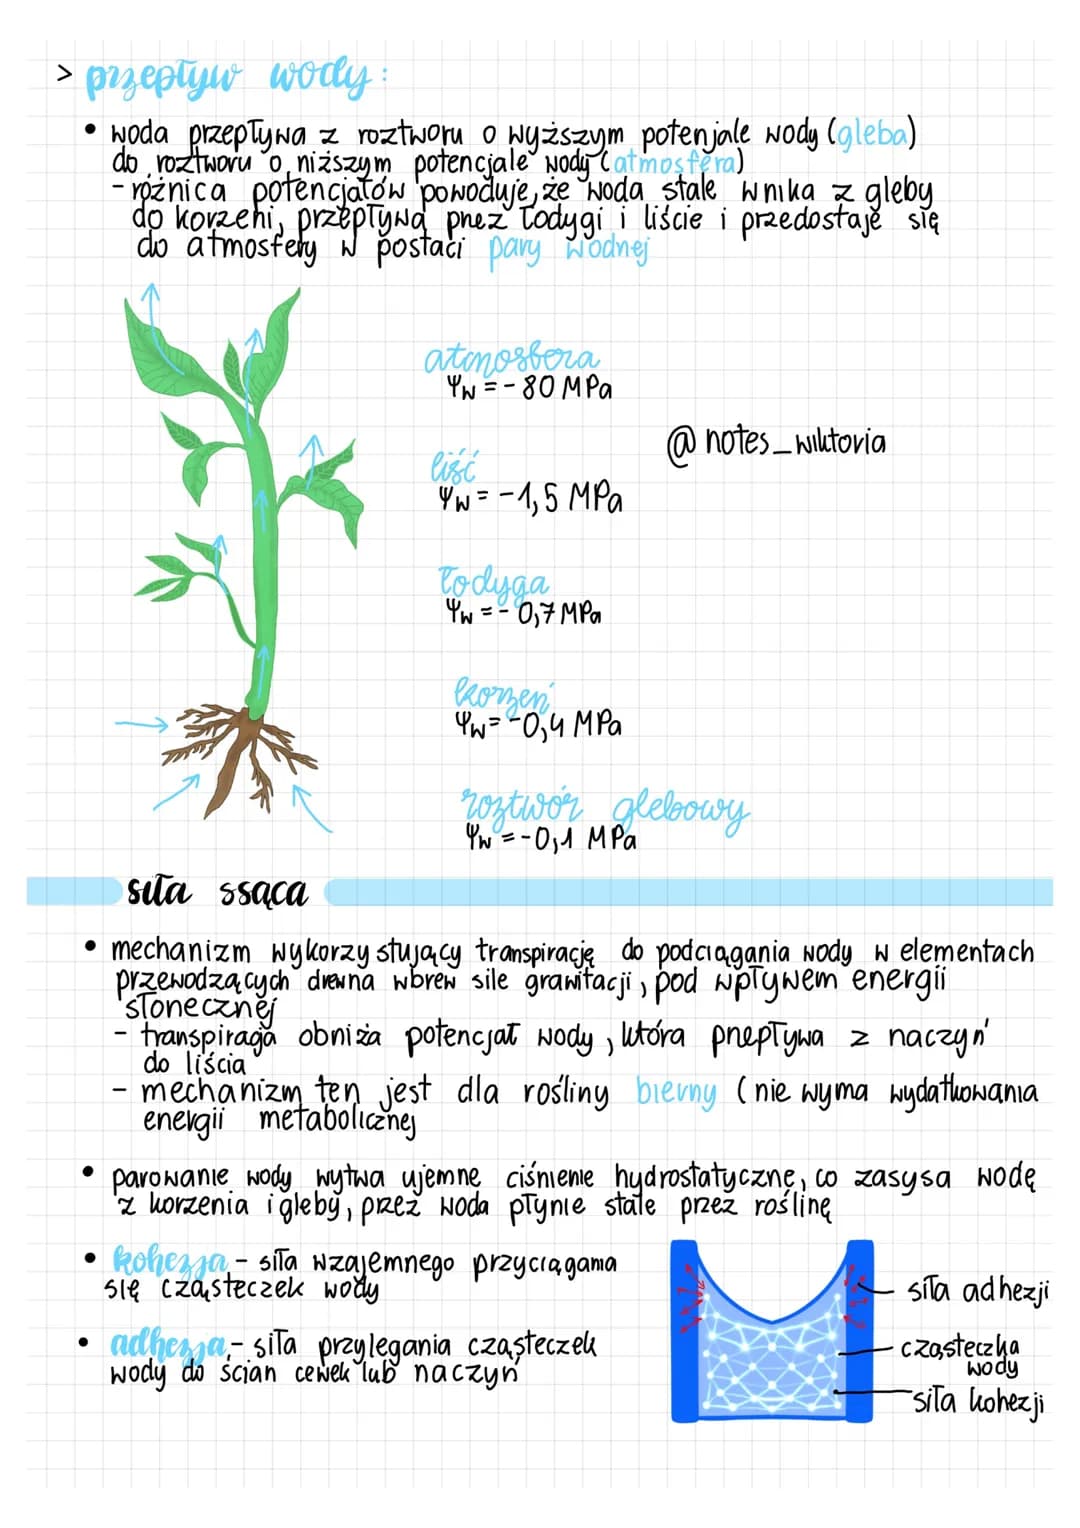 > przepływ wody:
• woda przepływa z roztworu o wyższym potenjale wody (gleba)
do roztworu o niższym potencjale wody (atmosfera)
- różnica potencjałów powoduje, że woda stale wnika z gleby
do korzeni, przepływa pnez łodygi i liście i przedostaje się
do atmosfery w postaci pary wodnej
atmosfera
Ψw = - 80 MPa
@ notes_wiktoria
liść
Ψw = -1,5 MPa
łodyga
Ψw = - 0,7 MPa
korzeń
Ψw = -0,4 MPa
roztwór glebowy
Ψw = -0,1 MPa
siła ssąca
• mechanizm wykorzystujący transpirację do podciągania wody w elementach
przewodzących drewna wbrew sile grawitacji, pod wpływem energii
słonecznej
- transpiraga obniża potencjał wody, która pnepływa z naczyń
do liścia
- mechanizm ten jest dla rośliny bierny (nie wyma wydatkowania
energii metabolicznej
• parowanie wody wytwa ujemne ciśnienie hydrostatyczne, co zasysa wodę
z korzenia i gleby, przez woda płynie stale przez roślinę
• kohezja - siła wzajemnego przyciągania
się cząsteczek wody
• adhezja - siła przylegania cząsteczek
wody do ścian cewek lub naczyń
siła adhezji
cząsteczka
wody
siła kohezji